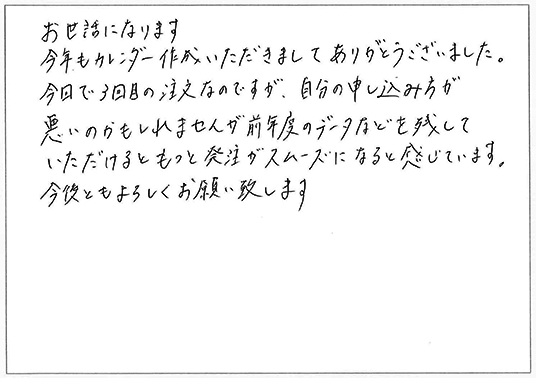 お世話になります
今年もカレンダー作成いただきましてありがとうございました。
今回で3回目の注文なのですが、自分の申し込み方が
悪いのかもしれませんが前年度のデータなどを残して
いただけるともっと発注がスムーズになると感じています。
今後ともよろしくお願い致します